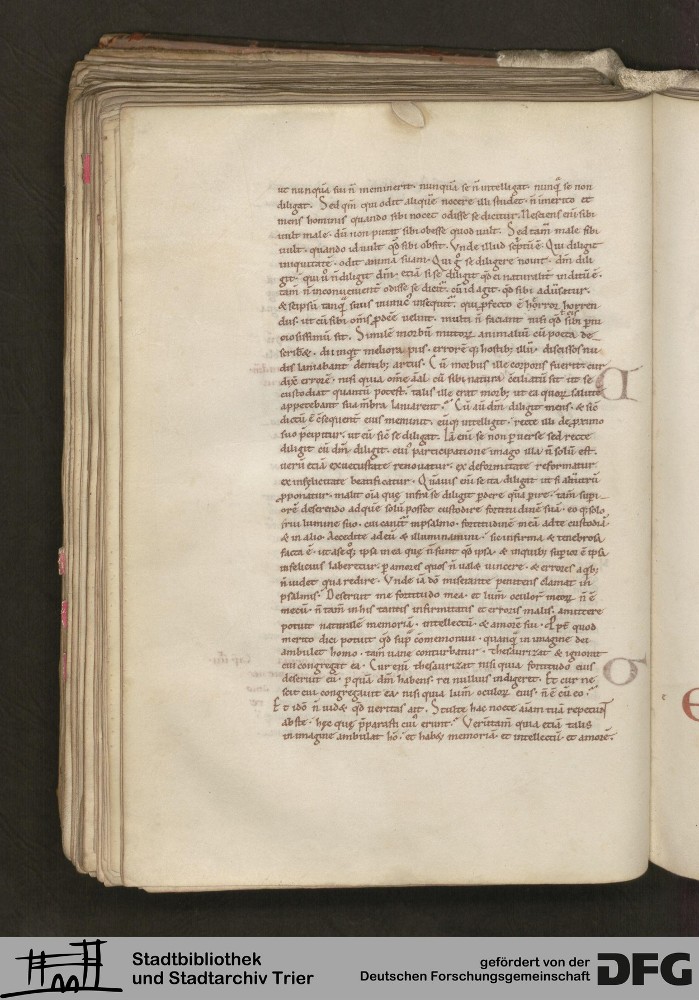 ut nunquā sui ñ meminerit· nunquā se ñ intelligat· nunq̄ se non
diligat· Sed qm̄ qui odit aliquē nocere illi studet· ñ inmerito et
mens hominis quando sibi nocet odisse se dicitur. Nesciens eni sibi
uult male· dū non putat sibi obesse quod uult. Sed tam̄ male sibi
uult· quando id uult qd̄ sibi obsit. Vnde illud scptū ē. Qui diligit
iniquitatē· odit animā suam. Qui g̊ se diligere nouit· dm̄ dili
git· qui ū ñ diligit dm̄· etiā si se diligit qd̄ ei naturalit̄ inditū ē·
tam̄ ñ inconuenient̄ odisse se dicit̄· cū id agit· qd̄ sibi aduersatur·
& seipsū tanq̄ suus inimic' insequit̄. qui pfecto ē horror horren
dus· ut cū sibi om̄s pdeē uelint· multi ñ faciant nisi qd̄ eis sibi pni
ciosissimū sit. Similē morbū mutoꝝ animaliū cū poeta de
scriberet· dii inqt meliora piis· errorē q; hostib; illū· discissos nu
dis laniabant dentib; artus. Cū morbus ille corporis fuerit· cur
dixit errorē· nisi quia om̄e aīal cū sibi natura ciliatū sit ut se
custodiat quantū potest· talis ille erat morb; ut ea quoꝝ salutē
appetebant sua mbra laniarent. Cū aū dm̄ diligit mens· & sic
dictū ē csequent̄ eius meminit· eūq; intelligit· recte illi de pximo
suo pcipitur· ut eū sic se diligat. Iā eni se non puerse sed recte
diligit cū dm̄ diligit· cui' participatione imago illa ñ solū est·
uerū etiā ex uetustate renouatur· ex deformitate reformatur·
ex infelicitate beatificatur· Quāuis eni se ita diligat ut si alterutrū
pponatur· malit oīa quę infra se diligit pdere quā pire· tam̄ supi
orē deserendo ad quē solū posset custodire fortitudinē suā· eo q; solo
frui lumine suo· cui canit̄ in psalmo· fortitudinē meā ad te custodiā·
& in alio· Accedite ad eū & illuminamini· sic infirma & tenebrosa
facta ē· ut a se q; ipsa in ea quę ñ sunt qd̄ ipsa· & inquib; supior ē ipsa
infelicius laberetur· p amores quos ñ ualet uincere· & errores a qb;
ñ uidet qua redire· Vnde iā dō miserante penitens clamat in
psalmis· Deseruit me fortitudo mea· et lum̄ oculoꝝ meoꝝ ñ ē
mecū· ñ tam̄ in his tantis infirmitatis et erroris malis· amittere
potuit naturalē memoriā· intellectū· & amorē sui· Ppt̄ quod
merito dici potuit qd̄ sup̄ comemoraui· quanq̄ in imagine dei
ambulet homo· tam̄ uane conturbatur· thesaurizat & ignorat
cui congregat ea· Cur eni thesaurizat nisi quia fortitudo eius
deseruit eū· p quā dm̄ habens· rei nullius indigeret. Et cur ne
scit cui congregauit ea· nisi quia lum̄ oculoꝝ eius· ñ ē cū eo·
Et idō ñ uidet qd̄ ueritas ait. Stulte hac nocte aīam tuā repetūt
abs te· hęc quę pparasti cui' erunt· Veruntam̄ quia etiā talis
in imagine ambulat hō· et habet memoriā· et intellectū· et amorē·
Stadtbibliothek
und Stadtarchiv Trier
gefördert von der
Deutschen Forschungsgemeinschaft
DFG